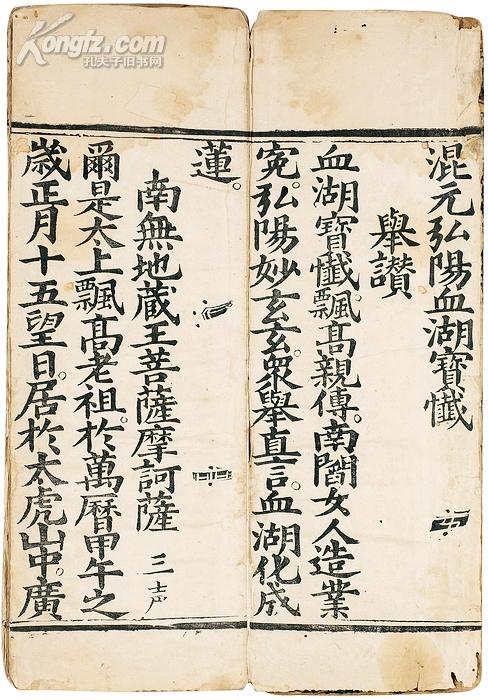 Kongfz.com
孔夫子旧书网
混元弘陽血湖寶懺
舉讃
血湖寶懺。飄髙親傳。南閻女人造業
寃。弘陽妙玄玄。衆舉真言。血湖化成
蓮。
南無地蔵王菩薩摩訶薩 三声
爾是太上飄髙老祖。於萬曆甲午之
歳正月十五望日。居於太虎山中。廣